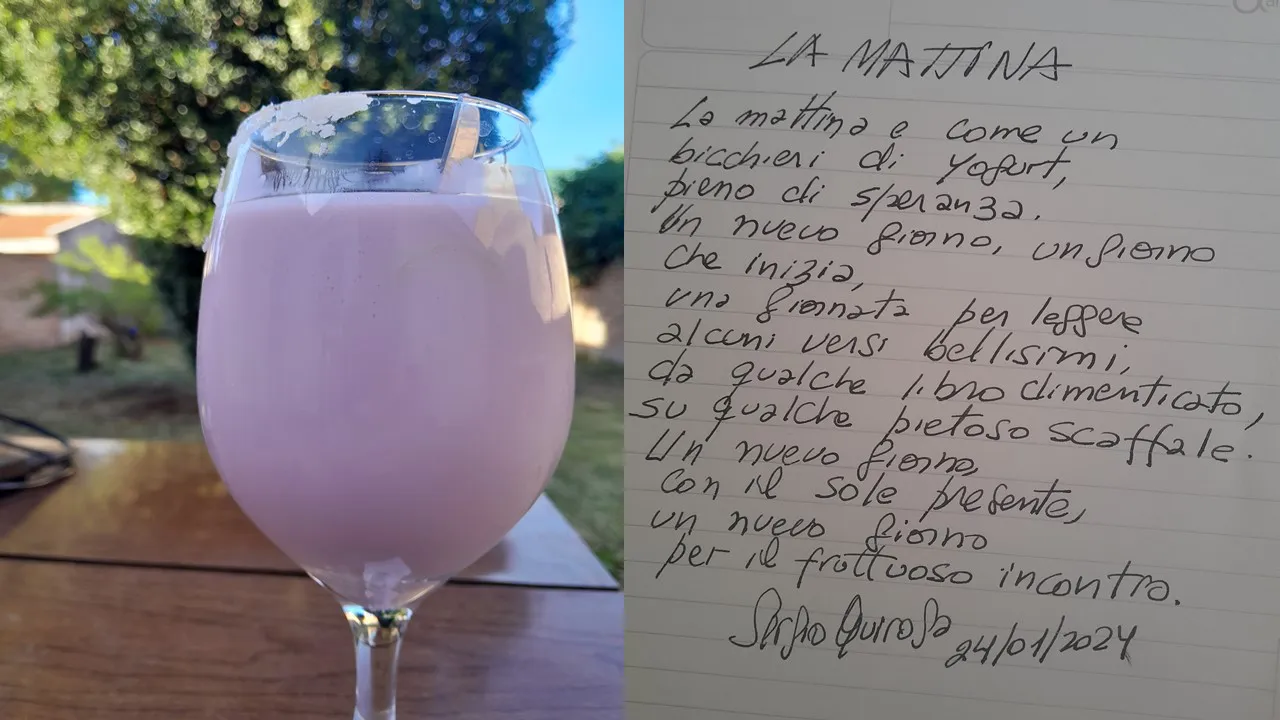 LA MATTINA
La mattina e come un
bicchieri di yogurt,
pieno di speranza.
Un nuevo giorno, un giorno
che inizia,
una giornata per leggere
alcuni versi bellisimi,
da qualche libro dimenticato,
su qualche pietoso scaffale.
Un nuevo giorno,
con il sole presente,
un nuevo giorno
per il fruttuoso incontro.
Sergio Quiroga
24/01/2024